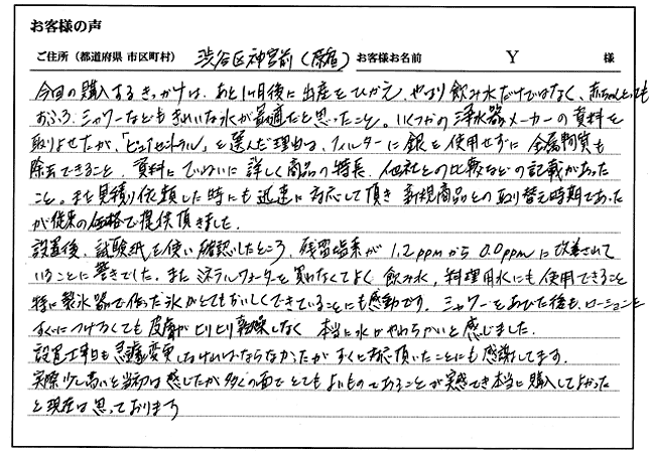 お客様の声
ご住所（都道府県 市区町村） 渋谷区神宮前（原宿） お客様お名前 Y 様
今回の購入するきっかけは、あと1ヶ月後に出産をひかえ、やはり飲み水だけではなく、赤ちゃんにとっても
おふろ、シャワーなどもきれいな水が最適だと思ったこと。いくつかの浄水器メーカーの資料を
取りよせたが、「ピュアセントラル」を選んだ理由は、フィルターに銀を使用せずに金属物質も
除去できること、資料にていねいに詳しく商品の特長、他社との比較などの記載があった
こと。また見積り依頼した時にも迅速に対応して頂き 新規商品との取り替え時期であった
が従来の価格で提供頂きました。
設置後、試験紙を使い確認したところ、残留塩素が 1.2ppmから 0.0ppmに改善されて
いることに驚きでした。また ミネラルウォーターを買わなくてよく 飲み水、料理用水にも使用できること
特に製氷器で作った氷がとてもおいしくできていることにも感動です。シャワーをあびた後も、ローションを
すぐにつけなくても皮膚がピリピリ乾燥しなく 本当に水がやわらかいと感じました。
設置工事日も急遽変更しなければならなかったが すぐに対応頂いたことにも感謝してます。
実際少し高いと当初は感じたが 多くの面でとてもよいものであることが実感でき本当に購入してよかった
と現在は思っております